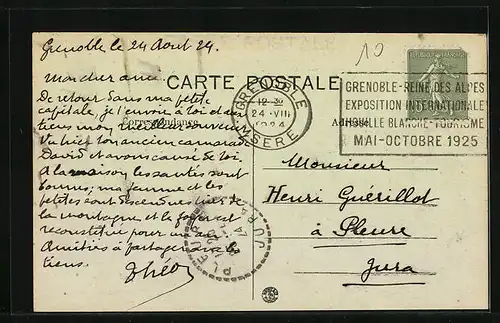 Grenoble le 24 Août 24.
Mon cher ami.
De retour dans ma petite
capitale, je t'envoie à toi et aux
tiens mon meilleur souvenir.
Vu hier ton ancien camarade
David et avons causé de toi.
A la maison les santés sont
bonnes; ma femme et les
petites sont descendues hier de
la montagne et le foyer est
reconstitué pour un an
Amitiés à partager avec les
tiens.
Théo
CARTE POSTALE
Correspondance
Adresse
10
GRENOBLE
12-30
24-VIII
1924
ISERE
GRENOBLE-REINE DES ALPES
EXPOSITION INTERNATIONALE
HOUILLE BLANCHE-TOURISME
MAI-OCTOBRE 1925
Monsieur
Henri Guérillot
à Pleure
Jura
PLEURE
JURA